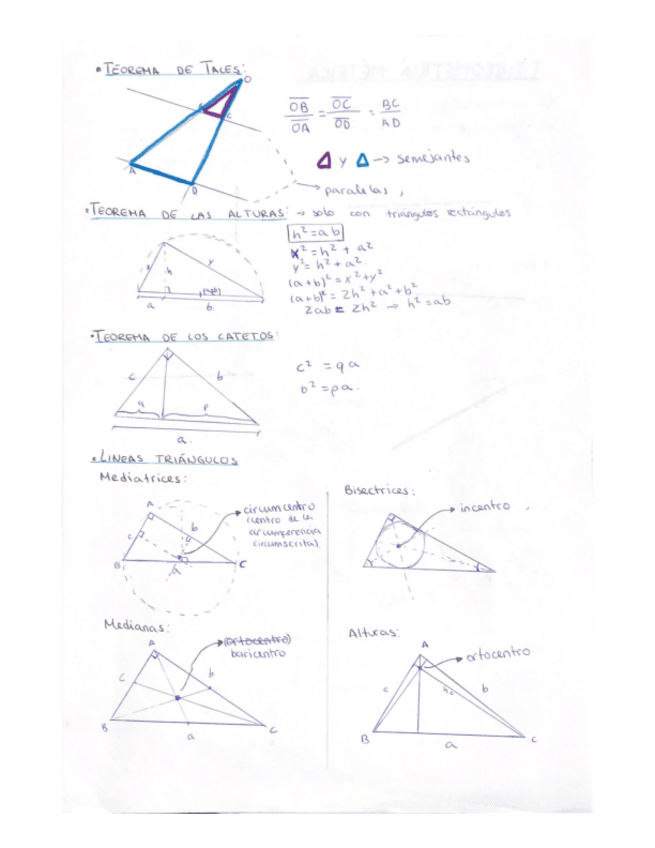 • TEOREMA DE TALES:
O
B
C
A
D
OB/OA = OC/OD = BC/AD
△ y △ → semejantes
paralelas,
• TEOREMA DE LAS ALTURAS: → solo con triángulos rectángulos
h² = ab
x² = h² + a²
y² = h² + a².
(a+b)² = x² + y²
(a+b)² = 2h² + a² + b²
2ab = 2h² → h² = ab
x
h
y
a
b.
• TEOREMA DE LOS CATETOS:
c² = qa
b² = pa.
c
b
q
p
a.
• LINEAS TRIÁNGULOS
Mediatrices:
A
b
c
B
a
C
circumcentro
(centro de la
circumferencia
circumscrita)
Bisectrices:
incentro
Medianas:
(ortocentro)
baricentro
A
c
b
B
a
C
Alturas:
ortocentro
A
c
h2
b
B
a
C